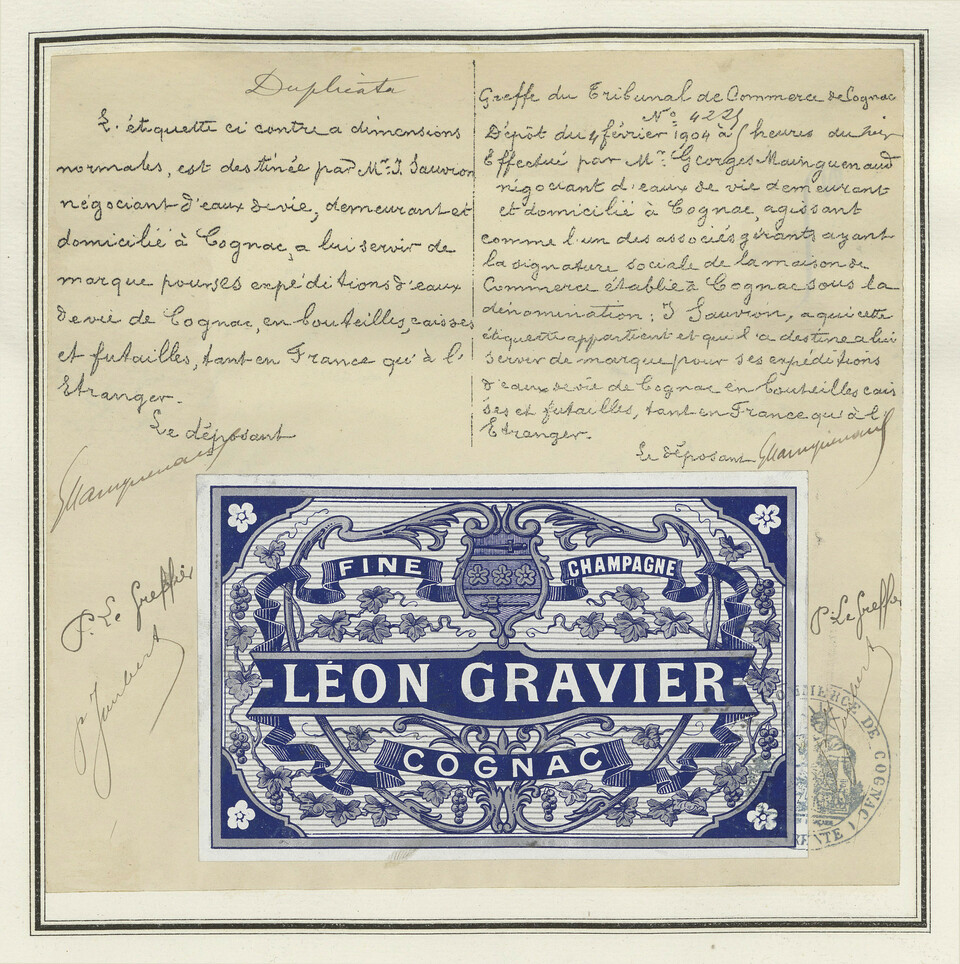 Duplicata
L'étiquette ci contre a dimensions
normales, est destinée par Mr. J. Sauvion
négociant d'eaux de vie, demeurant et
domicilié à Cognac, a lui servir de
marque pour ses expéditions d'eaux
de vie de Cognac, en bouteilles, caisses
et futailles, tant en France qu'à l'
Etranger.
Le déposant
GMainguenaud
P. Le Greffier
Greffe du Tribunal de Commerce de Cognac
No. 422
Dépôt du 4 février 1904 à 5 heures du
Effectué par Mr. Georges Mainguenaud
négociant d'eaux de vie demeurant
et domicilié à Cognac, agissant
comme l'un des associés gérants ayant
la signature sociale de la maison de
Commerce établie à Cognac sous la
dénomination: J Sauvion, a qui cette
étiquette appartient et qui l'a destine a lui
servir de marque pour ses expéditions
d'eaux de vie de Cognac en bouteilles cais
ses et futailles, tant en France qu'à l'
Etranger.
Le déposant GMainguenaud
P. Le Greffier
FINE CHAMPAGNE
LÉON GRAVIER
COGNAC
COMMERCE DE COGNAC